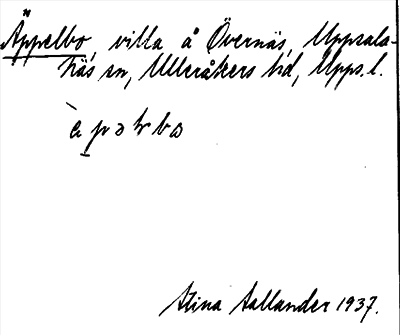 Äppelbo, villa å Övernäs, Uppsala-
näs sn, Ulleråkers hd, Upps. l.
Stina Hallander 1937.